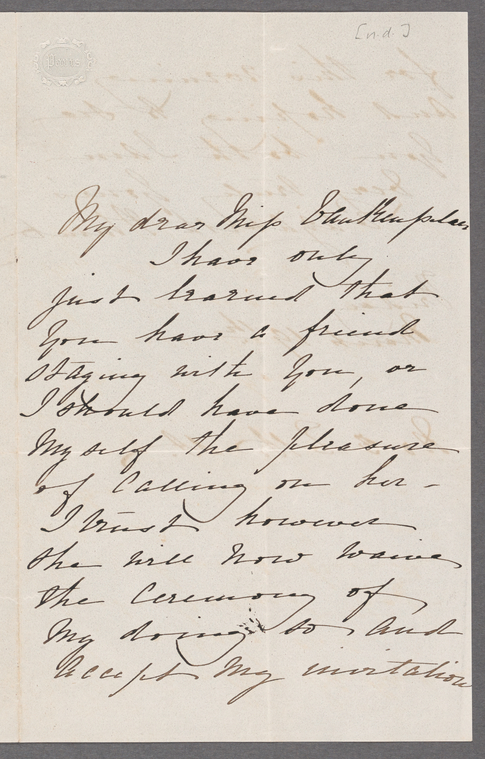 [n.d.]
My dear Miss Van Kempelen
I have only
just learned that
you have a friend
staying with you, or
I should have done
myself the pleasure
of calling on her -
I trust however
she will now waive
the ceremony of
my doing so and
accept my invitation